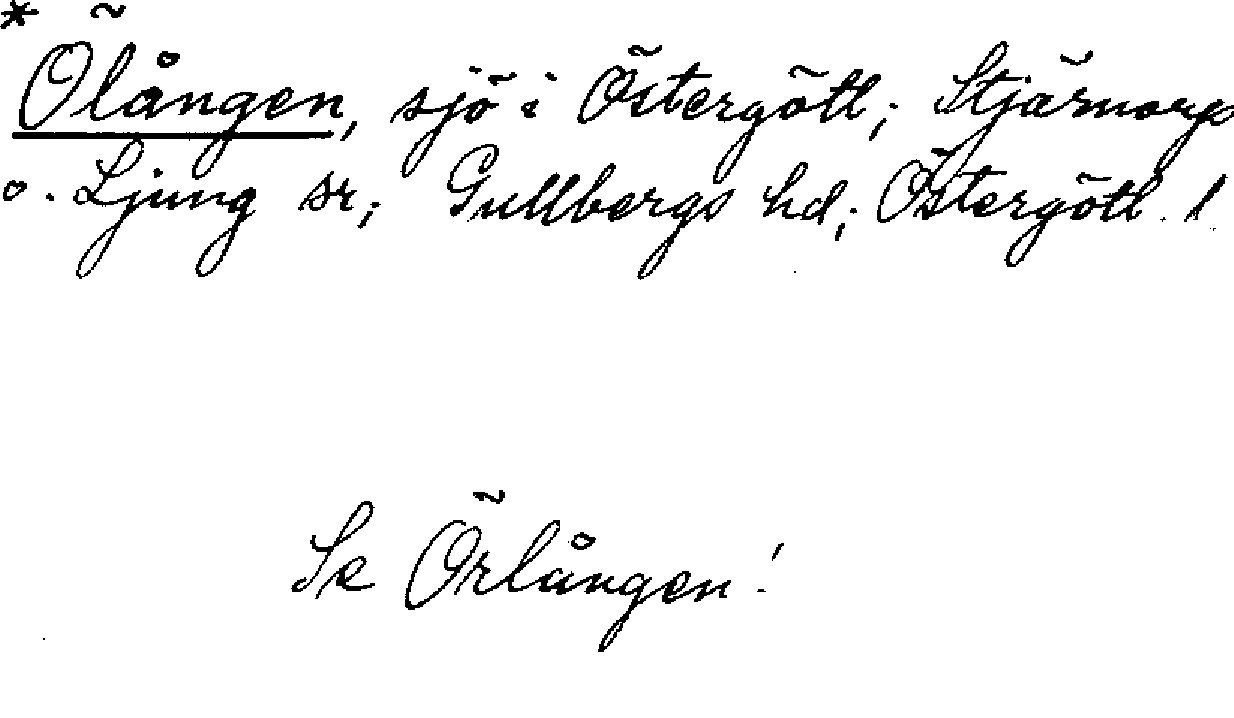 * Ölången, sjö i Östergötl; Stjärnorps
o. Ljung sr; Gullbergs hd; Östergötl. !
Se Örlången!